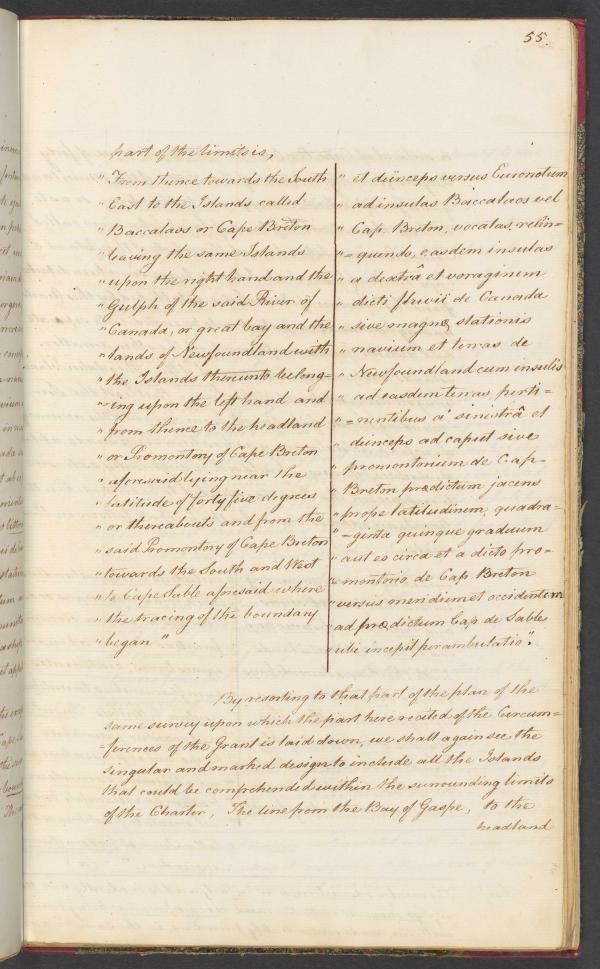 55.
part of the limits is,
" From thence towards the South
" East to the Islands called
" Baccalaos or Cape Breton
" leaving the same Islands
" upon the right hand and the
" Gulph of the said River of
" Canada, or great bay and the
" lands of Newfoundland with
" the Islands thereunto belong=
" ing upon the left hand and
" from thence to the headland
" or Promontory of Cape Breton
" aforesaid lying near the
" latitude of forty five degrees
" or thereabouts and from the
" said Promontory of Cape Breton
" towards the South and West
" to Cape Sable aforesaid where
" the tracing of the boundary
" began "
" et deinceps versus Euronotum
" ad insulas Baccalaos vel
" Cap. Breton, vocatas, relin=
" =quendo, easdem insulas
" a dextrâ et voraginem
" dicti fluvii de Canada
" sive magnæ stationis
" navium et terras de
" Newfoundland cum insulis
" ad easdem terras perti=
" =nentibus a' sinistrâ et
" deinceps ad caput sive
" promontorium de Cap-
" Breton prædictum jacens
" prope latitudinem, quadra=
" =ginta quinque graduum
" aut eo circa et a dicto pro=
" montorio de Cap. Breton
" versus meridiem et occidentem
" ad prædictum Cap. de Sable
" ubi incepit perambulatio".
By resorting to that part of the plan of the
same survey upon which the part here recited of the Circum=
=ferences of the Grant is laid down, we shall again see the
singular and marked design to include all the Islands
that could be comprehended within the surrounding limits
of the Charter, The line from the Bay of Gaspe, to the
headland